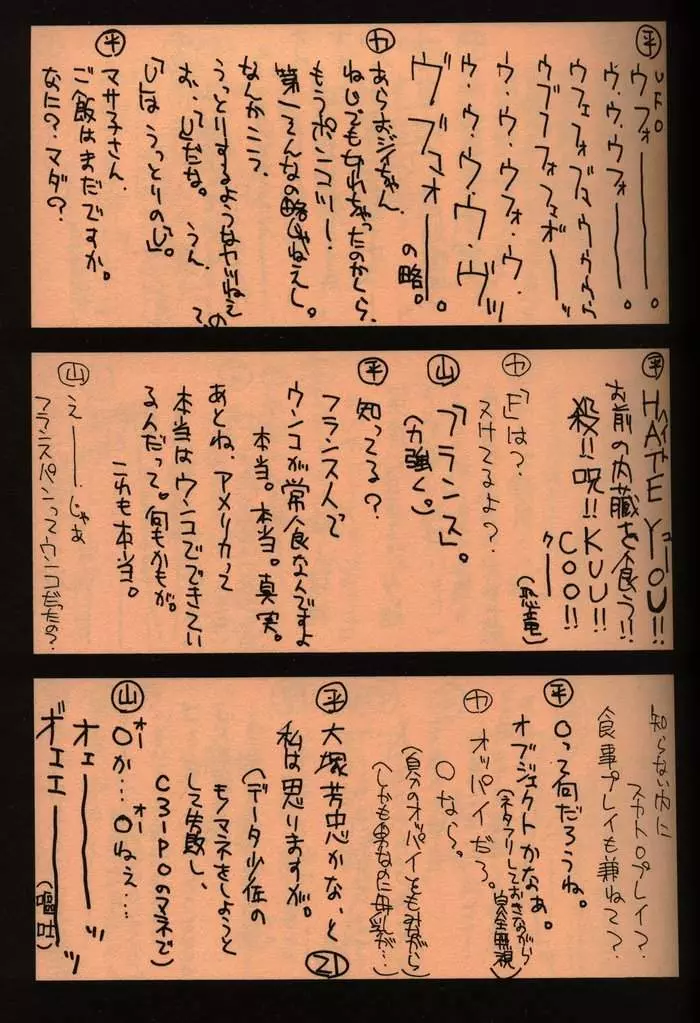 平
UFO
ウフォーーー。
ウ・ウ・ウフォーーー。
ウフェフォブマウウウウ
ウブブフォフェボーーッ
ウ・ウ・ウフォ・ウ・
ウ・ウ・ウ・ウ・ヴッ
ヴブマォーーー。
の略。
カ
あらおジイちゃん、
ねじでも切れちゃったのかしら、
もうポンコツー!
第一そんなの略じゃねえし。
なんかこう、
うっとりするようなヤツねえの
お、って
だな。 うん。
「U」は うっとりの「U」。
平
マサ子さん、
ご飯はまだですか。
なに?マダ?
平
HATE YOU!!
ヘイト ユー
お前の内臓を食う!!
殺!!呪!!KUU!!
COO!!
クー
(恐竜)
カ
「F」は?
ヌけてるよ?
山
「フランス」。
(力強く。)
平
知ってる?
フランス人て
ウンコが常食なんですよ
本当。本当。真実。
あとね、アメリカって
本当はウンコでできてい
るんだって。何もかもが。
これも本当。
山
えーー。じゃあ
フランスパンってウンコだったの?
知らない内に
スカトロプレイ?
食事プレイも兼ねて?
平
Oって何だろうね。
オブジェクトかなぁ。
(ネタフリしておきながら
完全無視)
カ
オッパイだろ。
Oなら。
(自分のオッパイをもみながら)
(しかも男なのに
平
大塚芳忠かな、と
私は思りますが。
(データ少佐の
モノマネをしようと
して失敗し、
C3-POのマネで)
山
Oか…Oねぇ…
オー オー
オェーーーッ
ギエエーーーッ
(嘔吐)
21